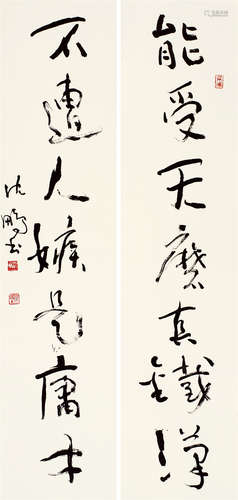 能受天磨真鐵漢
不遭人嫉是庸才
沈鵬書